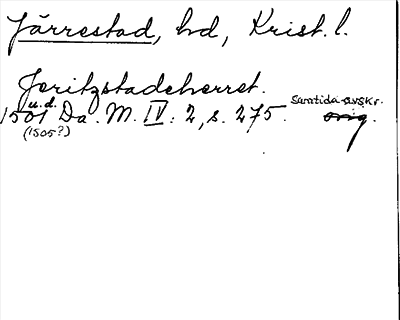 Järrestad, hd, Krist. l.
Jeritzstadeherret.
1501 u.d. Da. M. IV: 2, s. 275. Samtida avskr. orig.
(1505?)